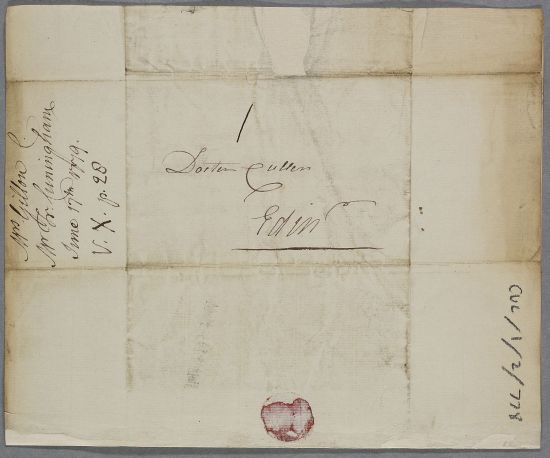 Mrs Gillon C.
Mr Fr. Cuningham
June 17th 1779.
V. X. p. 28
1
Doctor Cullen
Edinr
CUL/1/2/778